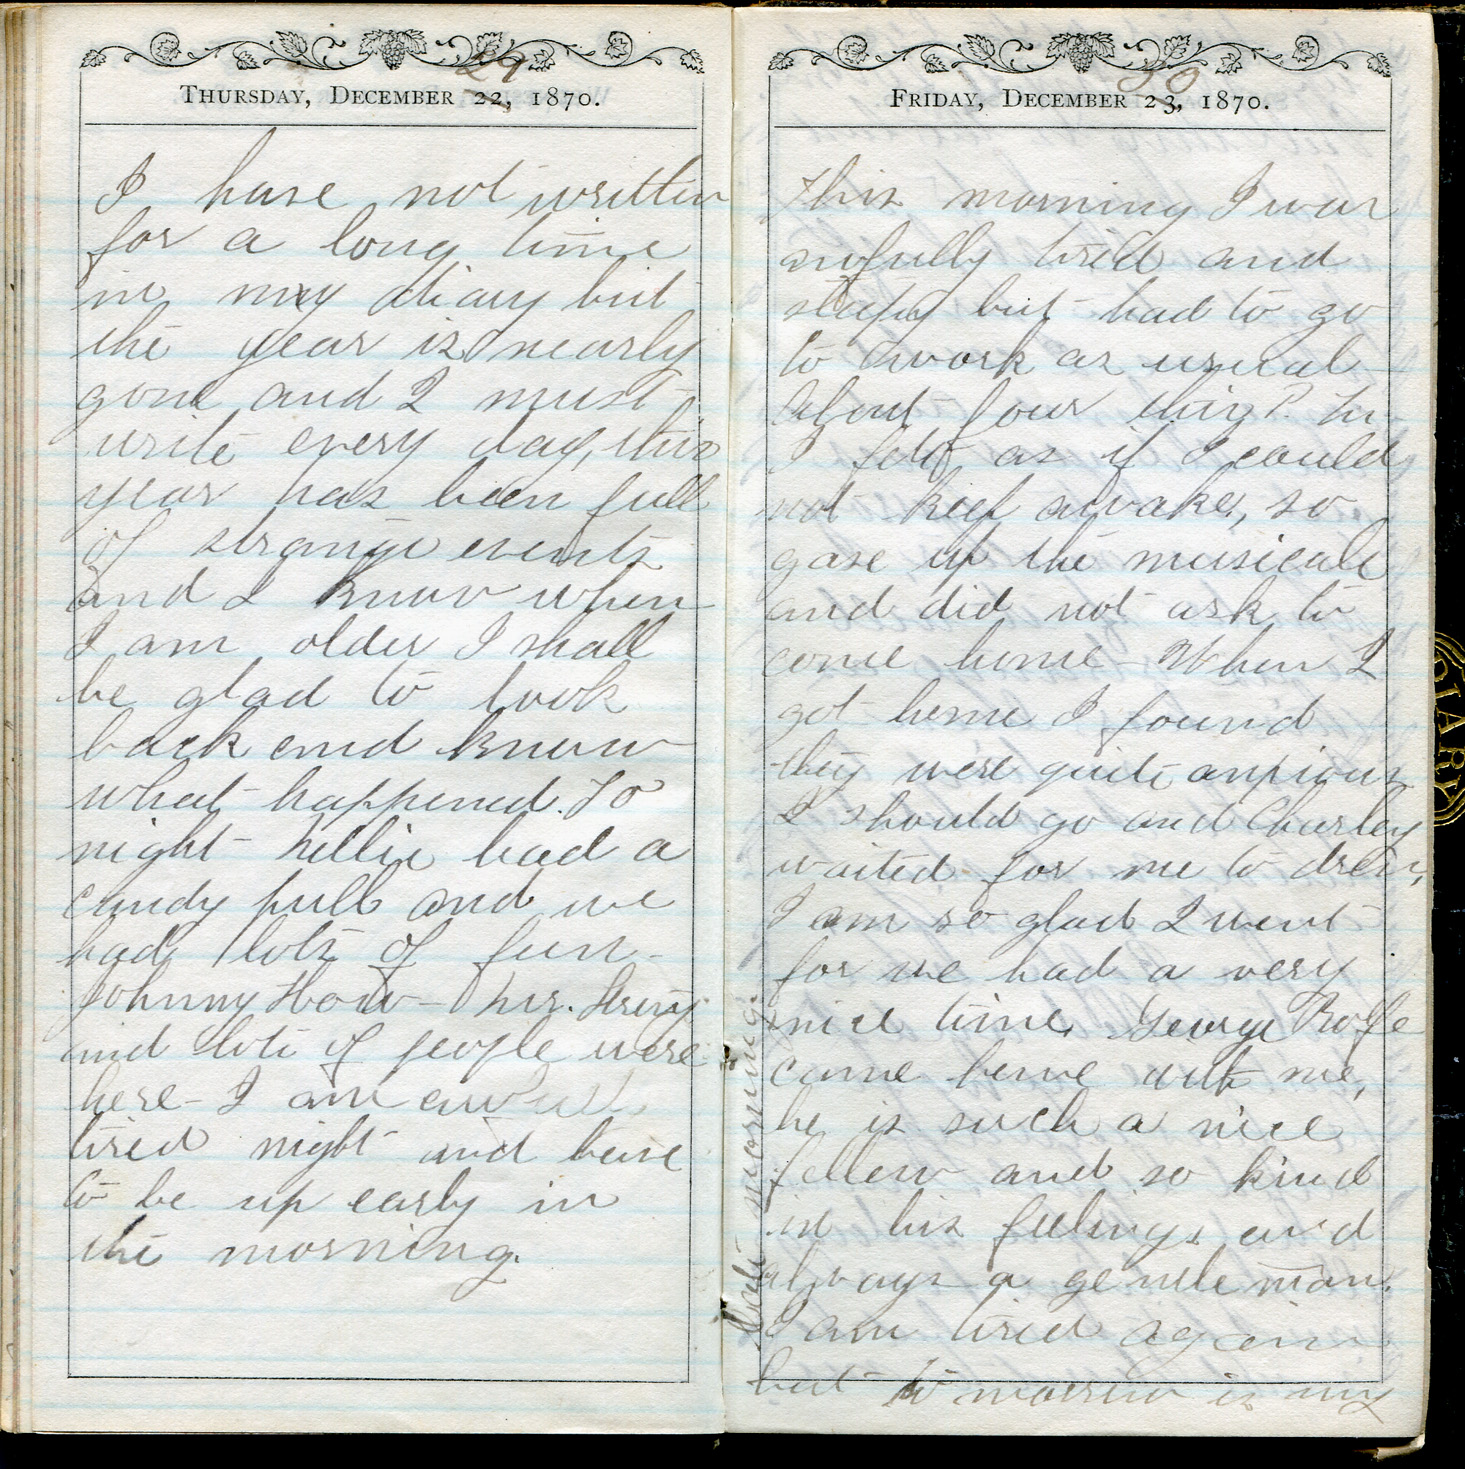 29
THURSDAY, DECEMBER 22, 1870.
I have not written
for a long time
in my diary but
the year is nearly
gone and I must
write every day, this
year has been full
of strange events
and I know when
I am older I shall
be glad to look
back and know
what happened. To
night Nellie had a
candy pull and we
had lots of fun -
Johnny How - Mr.
and lots of people were
here - I am awful
tired night and have
to be up early in
the morning.
30
FRIDAY, DECEMBER 23, 1870.
This morning I was
awfully tired and
sleepy but had to go
to work as usual
About four this P. M.
I felt as if I could
not keep awake, so
gave up the musicale
and did not ask to
come home - When I
got home I found
they were quite anxious
I should go and Charley
waited for me to dress,
I am so glad I went
for we had a very
nice time. George Rolfe
came home with me,
he is such a nice
fellow and so kind
in his feelings and
always a gentleman.
I am tired again
but to morrow is my
late morning.
DIARY